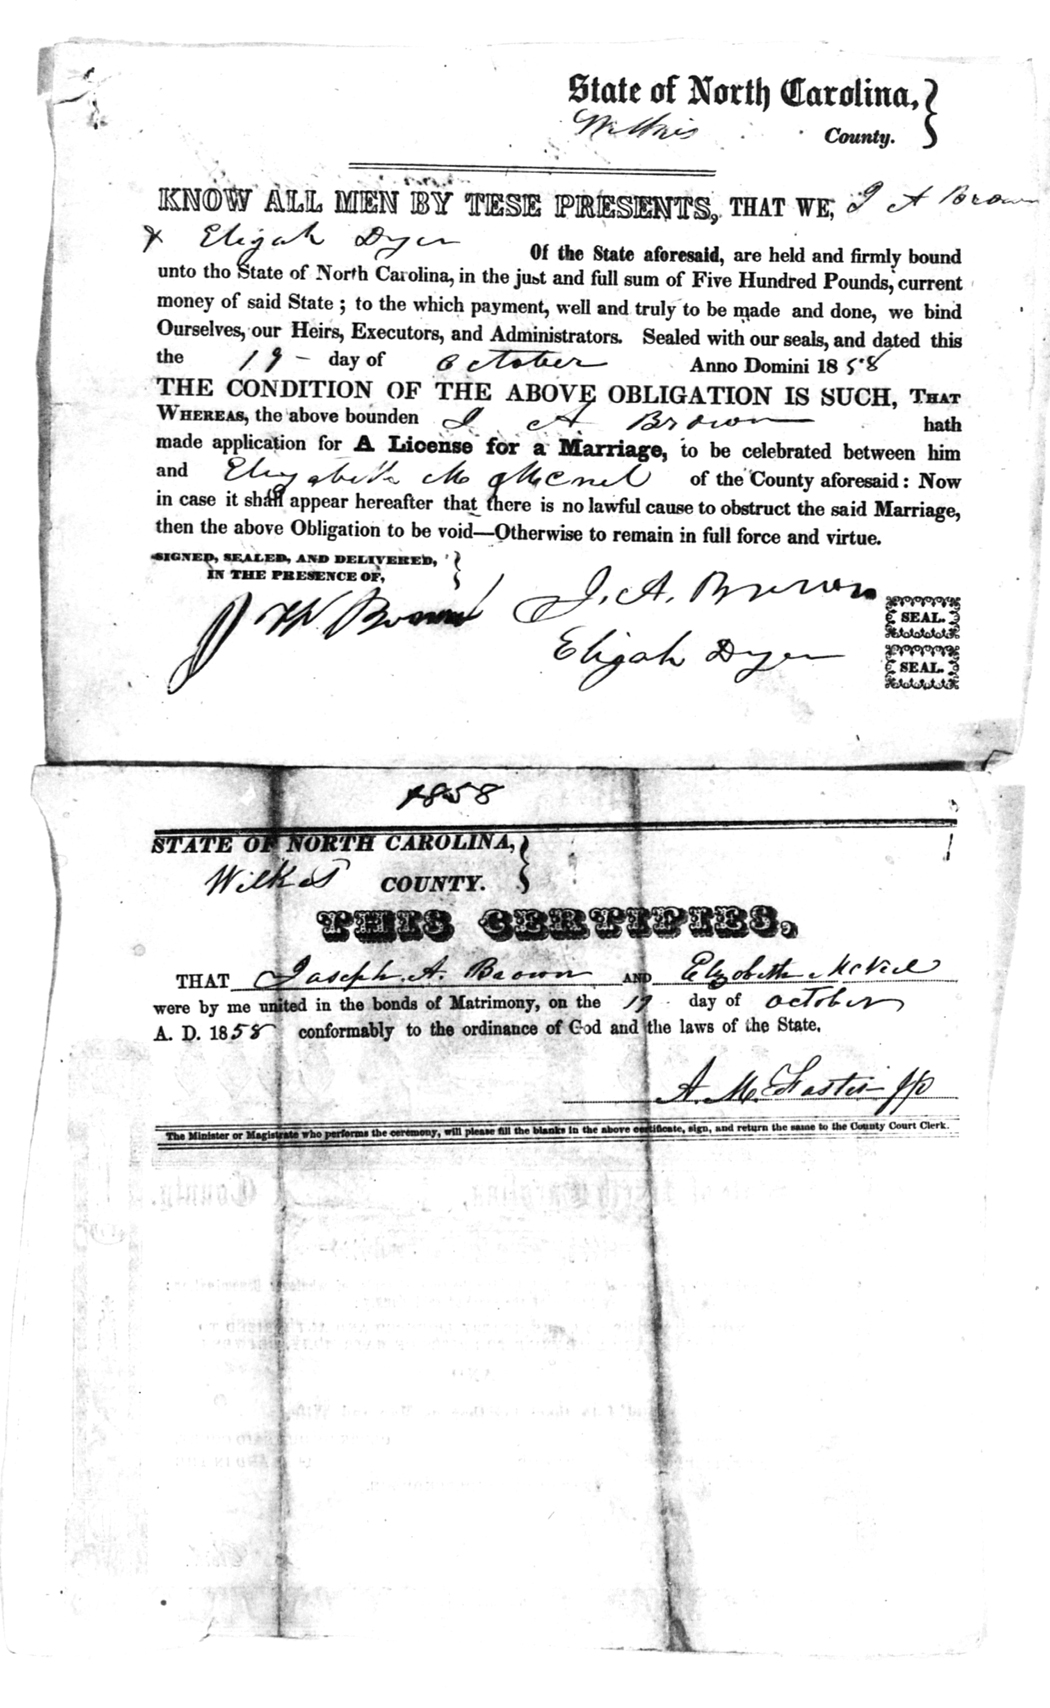 State of North Carolina,
Wilkes County.
KNOW ALL MEN BY TESE PRESENTS, THAT WE, J A Brown
& Elijah Dyer Of the State aforesaid, are held and firmly bound
unto tho State of North Carolina, in the just and full sum of Five Hundred Pounds, current
money of said State; to the which payment, well and truly to be made and done, we bind
Ourselves, our Heirs, Executors, and Administrators. Sealed with our seals, and dated this
the 19 - day of October Anno Domini 1858
THE CONDITION OF THE ABOVE OBLIGATION IS SUCH, THAT
WHEREAS, the above bounden J A Brown hath
made application for A License for a Marriage, to be celebrated between him
and Elizabeth McNeel of the County aforesaid: Now
in case it shall appear hereafter that there is no lawful cause to obstruct the said Marriage,
then the above Obligation to be void—Otherwise to remain in full force and virtue.
SIGNED, SEALED, AND DELIVERED,
IN THE PRESENCE OF,
J W Brown J. A. Brown SEAL.
Elijah Dyer SEAL.
1858
STATE OF NORTH CAROLINA,
Wilkes COUNTY.
THIS CERTIFIES,
THAT Joseph A. Brown AND Elzabeth McNeel
were by me united in the bonds of Matrimony, on the 19 day of October
A. D. 1858 conformably to the ordinance of God and the laws of the State.
A. M. Foster JP
The Minister or Magistrate who performs the ceremony, will please fill the blanks in the above certificate, sign, and return the same to the County Court Clerk.